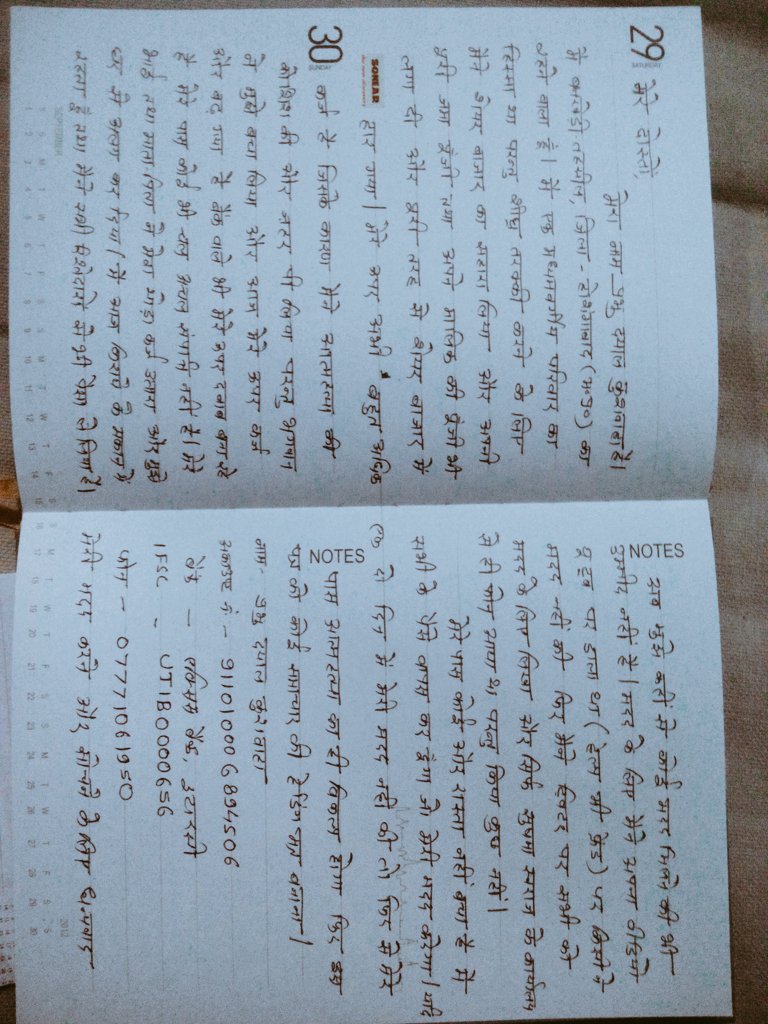 29
SATURDAY
मेरे दोस्तों,
मेरा नाम प्रभु दयाल कुशवाहा है।
मैं बनखेड़ी तहसील, जिला - होशंगाबाद (म०प्र०) का
रहने वाला हूँ। मैं एक मध्यमवर्गीय परिवार का
हिस्सा था परन्तु शीघ्र तरक्की करने के लिए
मैंने शेयर बाजार का सहारा लिया और अपनी
पूरी जमा पूंजी तथा अपने मालिक की पूंजी भी
लगा दी और बुरी तरह से शेयर बाजार में
SONEAR
हार गया। मेरे ऊपर काफी बहुत अधिक
30
SUNDAY
कर्ज है जिसके कारण मैंने आत्महत्या की
कोशिश की और जहर पी लिया परन्तु भगवान
ने मुझे बचा लिया और आज मेरे ऊपर कर्ज
और बढ़ गया है बैंक वाले भी मेरे ऊपर दबाव बना रहे
है मेरे पास कोई भी चल अचल संपत्ति नहीं है। मेरे
भाई तथा माता पिता ने मेरा थोड़ा कर्ज उतारा और मुझे
घर से अलग कर दिया। मैं आज किराये के मकान में
रहता हूँ तथा मेरे सभी रिश्तेदारों ने भी
SEPTEMBER
S M T W T F S S M T W T F S S M T W T F S S M T W T F S S
1 2 3 4 5 6 7 8 9 10 11 12 13 14 15 16 17 18 19 20 21 22 23 24 25 26 27 28 29 30
2012
NOTES
अब मुझे कहीं से कोई मदद मिलने की भी
उम्मीद नहीं है। मदद के लिए मैंने अपना वीडियो
यूट्यूब पर डाला था (हेल्प मी फ्रेंड) पर किसी ने
मदद नहीं की फिर मैंने ट्विटर पर सभी को
मदद के लिए लिखा और सिर्फ सुषमा स्वराज के कार्यालय
से ही फोन आया था परन्तु किया कुछ नहीं।
मेरे पास कोई और रास्ता नहीं बचा है मैं
सभी के पैसे वापस कर दूंगा जो मेरी मदद करेगा। यदि
दो दिन में मेरी मदद नहीं की तो फिर मेरे
NOTES
पास आत्महत्या का ही विकल्प होगा फिर इस
पत्र को कोई समाचार की हेडिंग मत बनाना।
नाम - प्रभु दयाल कुशवाहा
अकाउंट नं - 911010006894506
बैंक - एक्सिस बैंक, इटारसी
IFSC - UTIB0000656
फोन - 07771061950
मेरी मदद करने और सोचने के लिए धन्यवाद